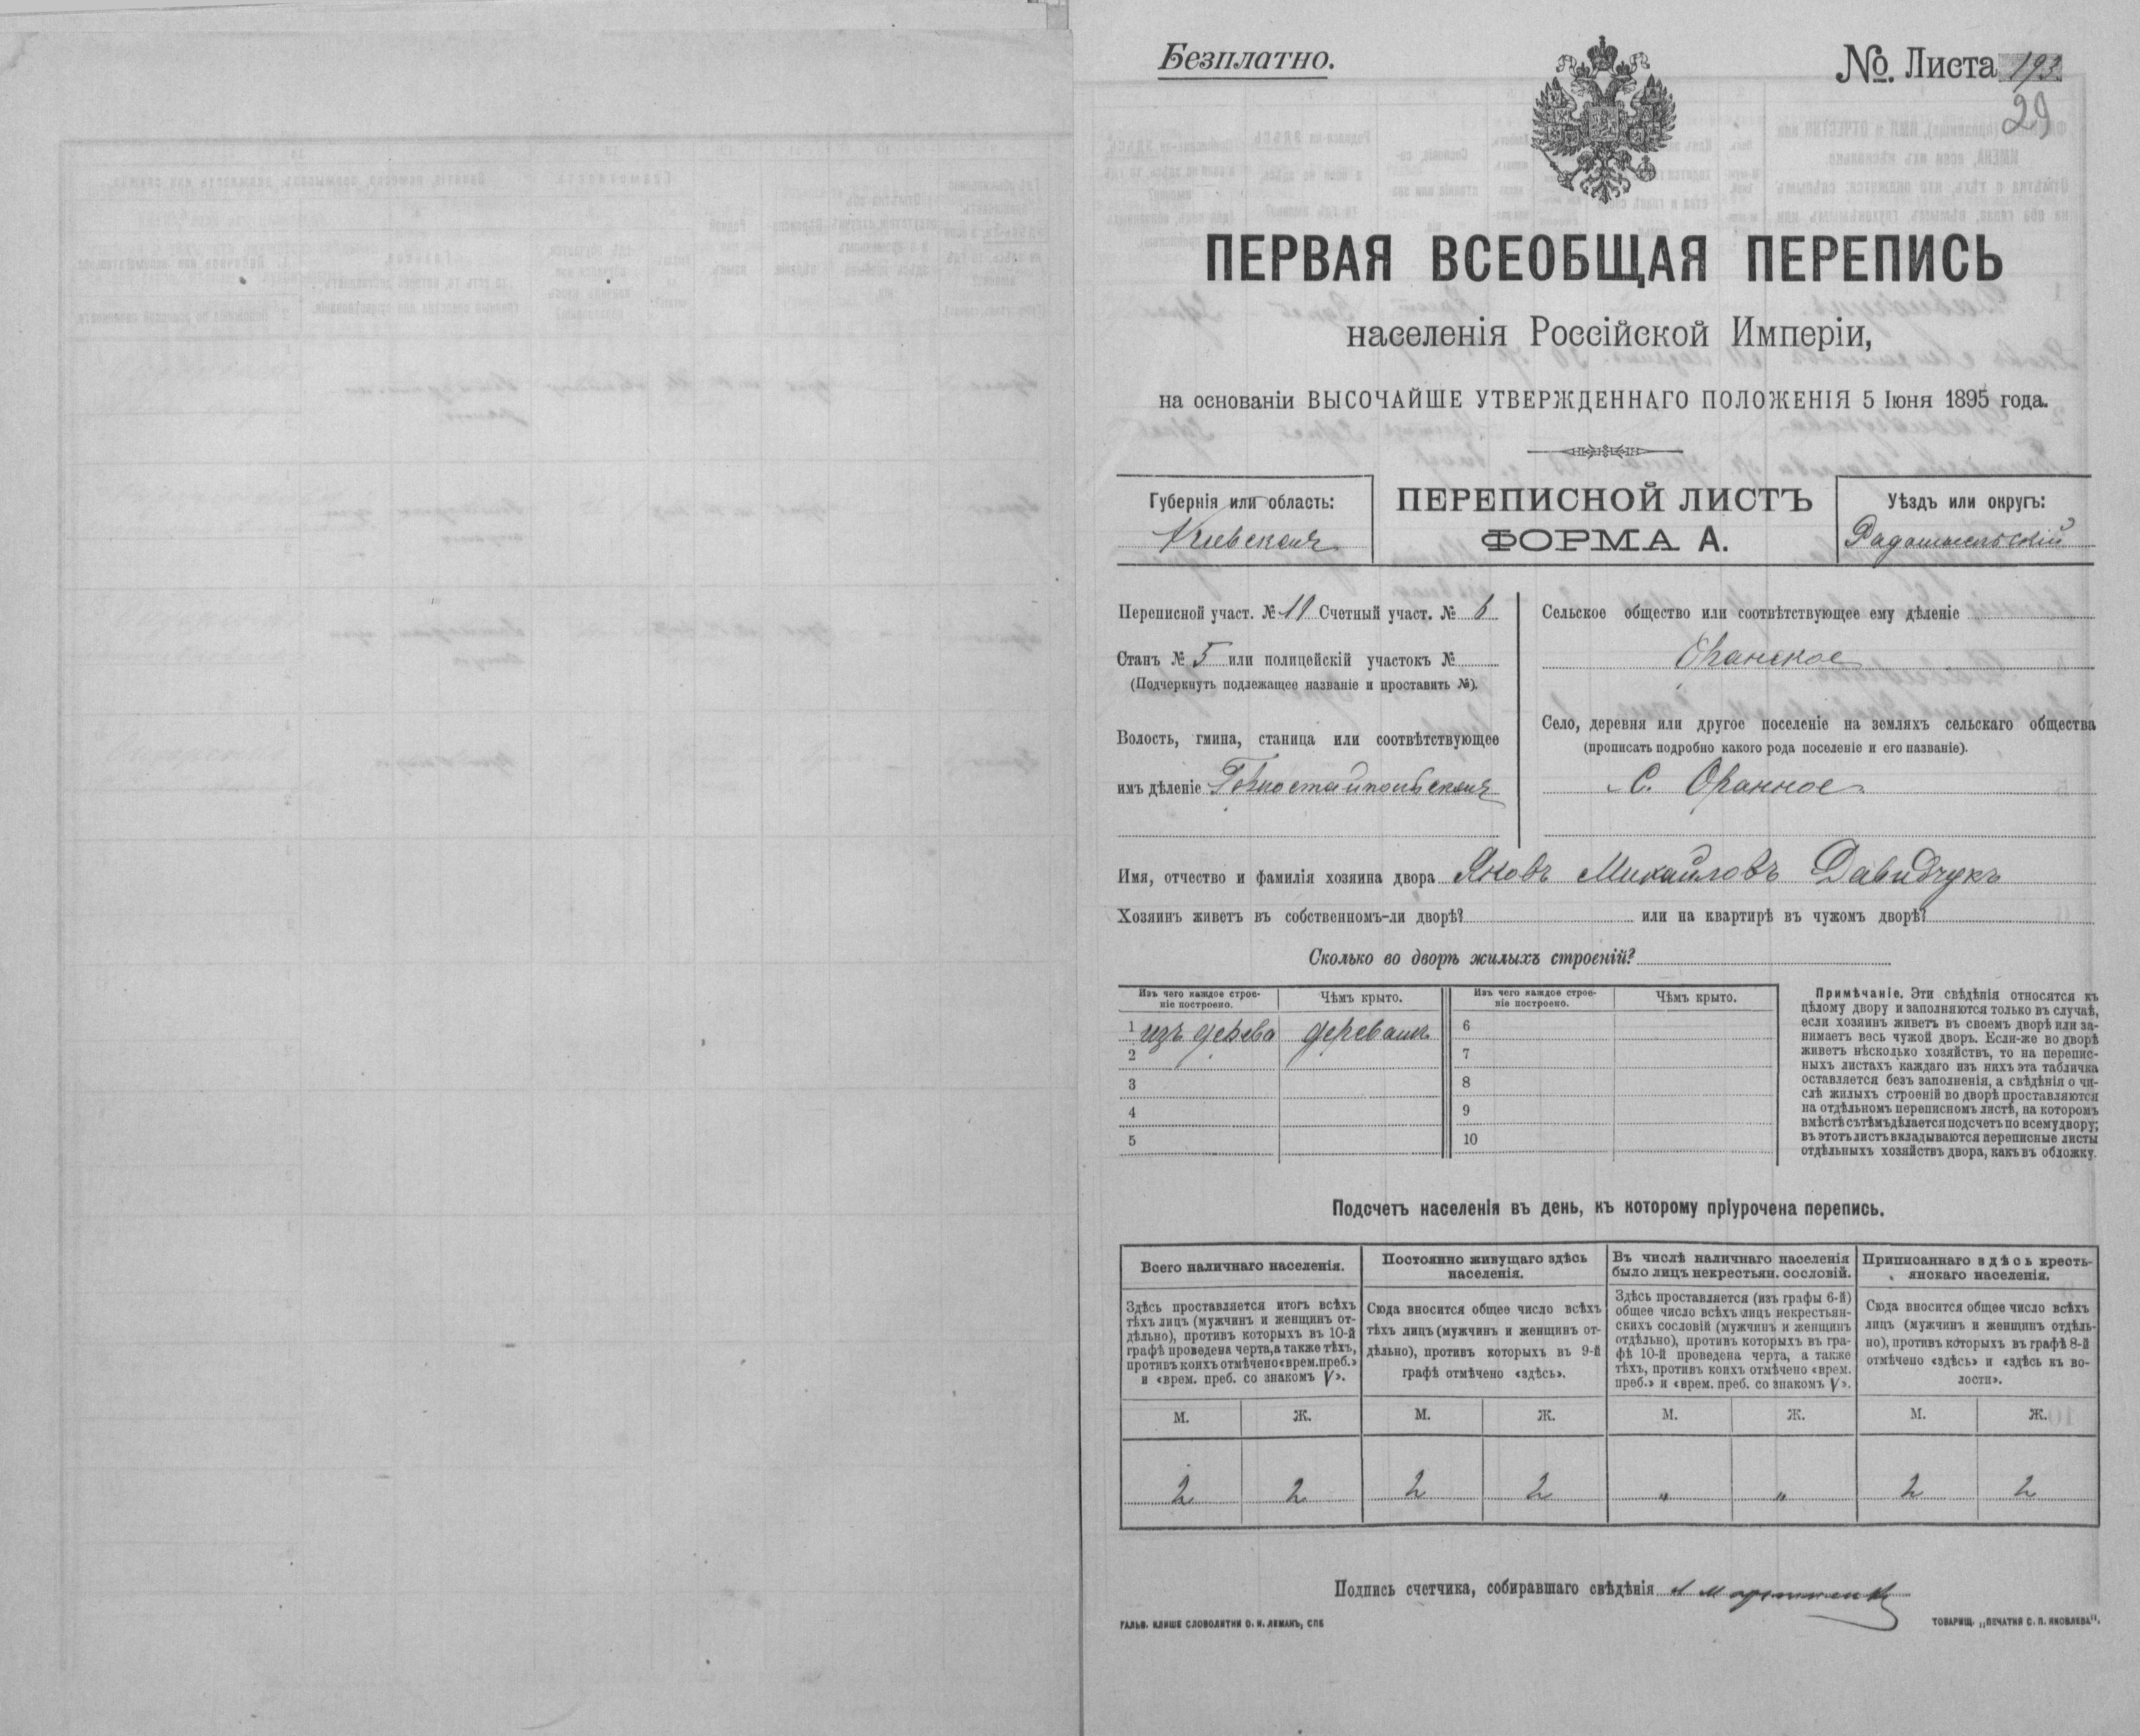 Безплатно.
№. Листа 193
29
ПЕРВАЯ ВСЕОБЩАЯ ПЕРЕПИСЬ
населенія Россійской Имперіи,
на основаніи ВЫСОЧАЙШЕ УТВЕРЖДЕННАГО ПОЛОЖЕНІЯ 5 Іюня 1895 года.
Губернія или область:
Кіевская
ПЕРЕПИСНОЙ ЛИСТЪ
ФОРМА А.
Уѣздъ или округъ:
Радомысльскій
Переписной участ. № 19 Счетный участ. № 6
Станъ № 5 или полицейскій участокъ №
(Подчеркнуть подлежащее названіе и проставить №).
Волость, гмина, станица или соотвѣтствующее
имъ дѣленіе Горностайпольская
Сельское общество или соотвѣтствующее ему дѣленіе
Оранское
Село, деревня или другое поселеніе на земляхъ сельскаго общества
(прописать подробно какого рода поселеніе и его названіе).
С. Оранное
Имя, отчество и фамилія хозяина двора Яковъ Михайловъ Давидчукъ
Хозяинъ живетъ въ собственномъ-ли дворѣ? или на квартирѣ въ чужомъ дворѣ?
Сколько во дворѣ жилыхъ строеній?
Изъ чего каждое строе-
ніе построено.
Чѣмъ крыто.
Изъ чего каждое строе-
ніе построено.
Чѣмъ крыто.
1 изъ дерева деревами 6
2 7
3 8
4 9
5 10
Примѣчаніе. Эти свѣдѣнія относятся къ
цѣлому двору и заполняются только въ случаѣ,
если хозяинъ живетъ въ своемъ дворѣ или за-
нимаетъ весь чужой дворъ. Если-же во дворѣ
живетъ нѣсколько хозяйствъ, то на перепис-
ныхъ листахъ каждаго изъ нихъ эта табличка
оставляется безъ заполненія, а свѣдѣнія о чи-
слѣ жилыхъ строеній во дворѣ проставляются
на отдѣльномъ переписномъ листѣ, на которомъ
вмѣстѣ съ тѣмъ дѣлается подсчетъ по всему двору;
въ этотъ листъ вкладываются переписные листы
отдѣльныхъ хозяйствъ двора, какъ въ обложку.
Подсчетъ населенія въ день, къ которому пріурочена перепись.
Всего наличнаго населенія.
Здѣсь проставляется итогъ всѣхъ
тѣхъ лицъ (мужчинъ и женщинъ от-
дѣльно), противъ которыхъ въ 10-й
графѣ проведена черта, а также тѣхъ,
противъ коихъ отмѣчено «врем. преб.»
и «врем. преб. со знакомъ V».
Постоянно живущаго здѣсь
населенія.
Сюда вносится общее число всѣхъ
тѣхъ лицъ (мужчинъ и женщинъ от-
дѣльно), противъ которыхъ въ 9-й
графѣ отмѣчено «здѣсь».
Въ числѣ наличнаго населенія
было лицъ некрестьян. сословій.
Здѣсь проставляется (изъ графы 6-й)
общее число всѣхъ лицъ некрестьян-
скихъ сословій (мужчинъ и женщинъ
отдѣльно), противъ которыхъ въ гра-
фѣ 10-й проведена черта, а также
тѣхъ, противъ коихъ отмѣчено «врем.
преб.» и «врем. преб. со знакомъ V».
Приписаннаго здѣсь кресть-
янскаго населенія.
Сюда вносится общее число всѣхъ
лицъ (мужчинъ и женщинъ отдѣль-
но), противъ которыхъ въ графѣ 8-й
отмѣчено «здѣсь» и «здѣсь къ во-
лости».
М. Ж. М. Ж. М. Ж. М. Ж.
2 2 2 2 „ „ 2 2
Подпись счетчика, собиравшаго свѣдѣнія
ГАЛЬВ. КЛИШЕ СЛОВОЛИТНИ О. И. ЛЕМАНЪ, СПБ
ТОВАРИЩ. „ПЕЧАТНЯ С. П. ЯКОВЛЕВА".